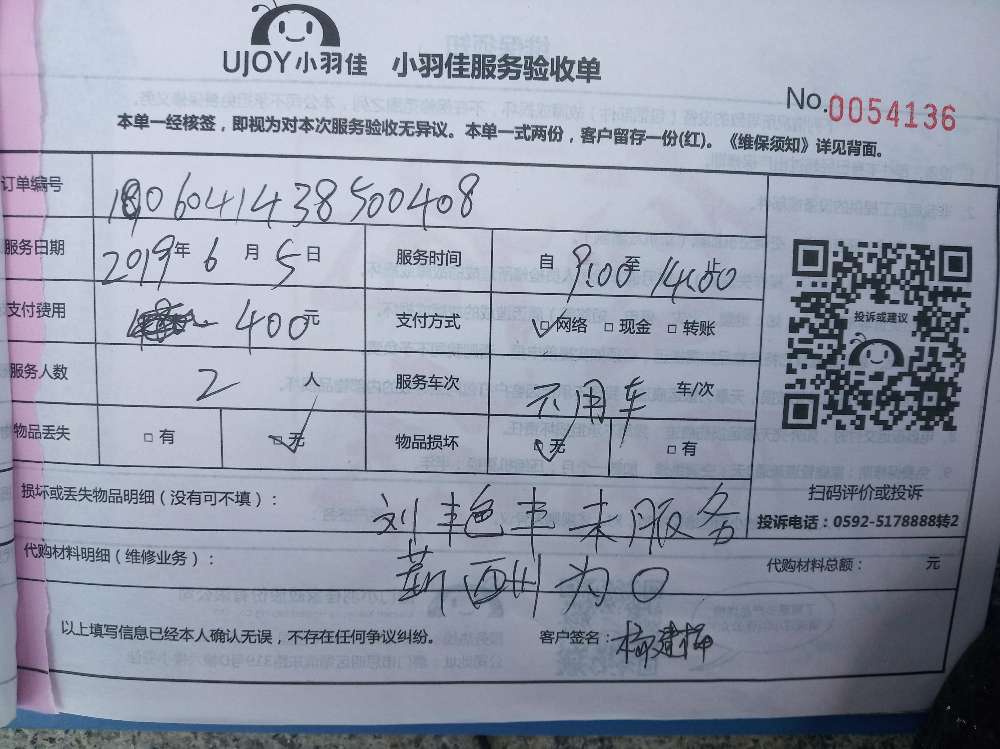 UJOY小羽佳 小羽佳服务验收单
No.0054136
本单一经核签，即视为对本次服务验收无异议。本单一式两份，客户留存一份(红)。《维保须知》详见背面。
订单编号 1906041438500408
服务日期 2019年 6 月 5 日 服务时间 自 9:00 至 14:00 止
支付费用 400元 支付方式 网络 现金 转账
服务人数 2 人 服务车次 不用车 车/次
物品丢失 有 无 物品损坏 无 有
投诉或建议
扫码评价或投诉
投诉电话：0592-5178888转2
损坏或丢失物品明细（没有可不填）： 刘艳丰未服务
代购材料明细（维修业务）： 为0
代购材料总额： 元
以上填写信息已经本人确认无误，不存在任何争议纠纷。 客户签名：